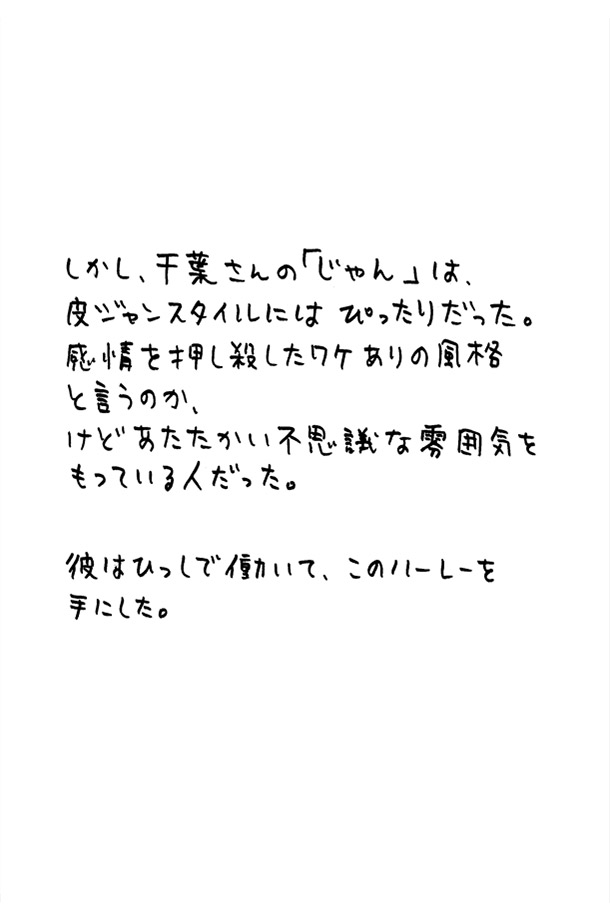 しかし、千葉さんの「じゃん」は、
皮ジャンスタイルには ぴったりだった。
感情を押し殺したワケありの風格
と言うのか、
けどあたたかい不思議な雰囲気を
もっている人だった。
彼はひっしで働いて、このハーレーを
手にした。